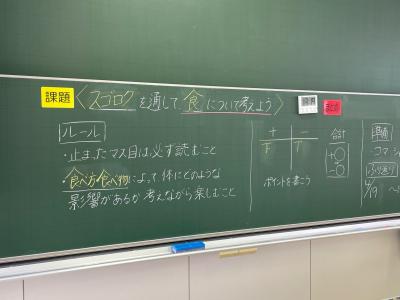 課題
〈スゴロクを通して、食について考えよう〉
ルール
・止まったマス目は必ず読むこと
・食べ方・食べ物によって体にどのような
影響があるか考えながら楽しむこと
＋ － 合計
下 T +○
-○
ポイントを書こう
準備
コマ
ふり返り
4/19 ～